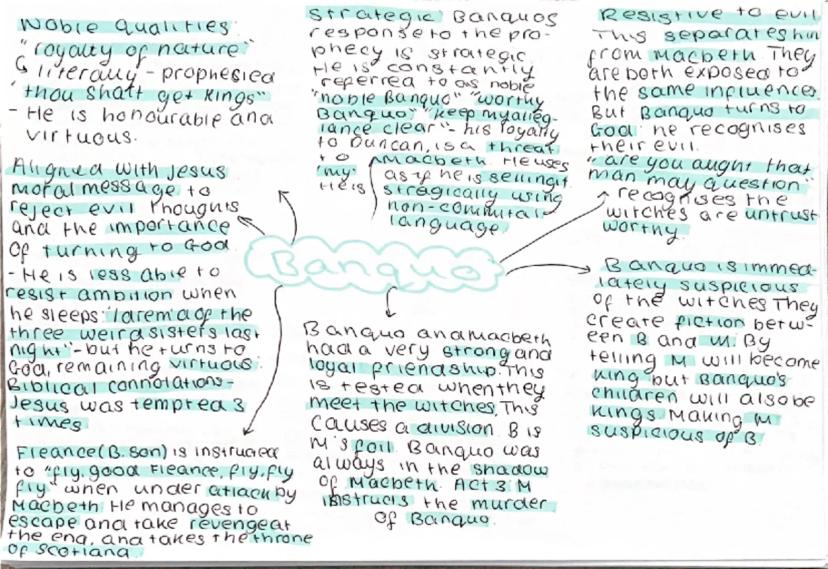 Noble Qualities:
"royalty of nature"
↳ literally - prophesied
"thou shalt get kings"
- He is honourable and
virtuous.
Strategic: Banquos
response to the pro-
phecy is strategic
He is constantly
referred to as noble
"noble Banquo" "worthy
Banquo" "keep my alleg-
iance clear" - his loyalty
to Duncan, is a threat
to Macbeth. He uses
"my" as if he is selling it
He is stragically using
non-commital
language
Resistive to evil
This separates him
from Macbeth. They
are both exposed to
the same influences
But Banquo turns to
God: he recognises
their evil.
"are you aught that
man may question"
recognises the
witches are untrust
worthy.
Aligned with Jesus
moral message to
reject evil thoughts
and the importance
of turning to God
- He is less able to
resist ambition when
he sleeps: "I drem'd of the
three weird sisters last
night" - but he turns to
God, remaining virtuous:
Biblical connotations -
Jesus was tempted 3
times
Banquo
Banquo is immed-
iately suspicious
of the witches They
create fiction betw-
een B and M. By
telling M will become
King but Banquo's
children will also be
Kings Making M
suspicious of B.
Banquo and macbeth
had a very strong and
loyal friendship. This
is tested when they
meet the witches, This
causes a division. B is
M's foil. Banquo was
always in the shadow
of Macbeth. Act 3: M
instructs the murder
of Banquo.
Fleance (B. son) is instructed
to "fly, good Fleance, fly, fly
fly" when under attack by
Macbeth He manages to
escape and take revenge at
the end, and takes the throne
of Scotland